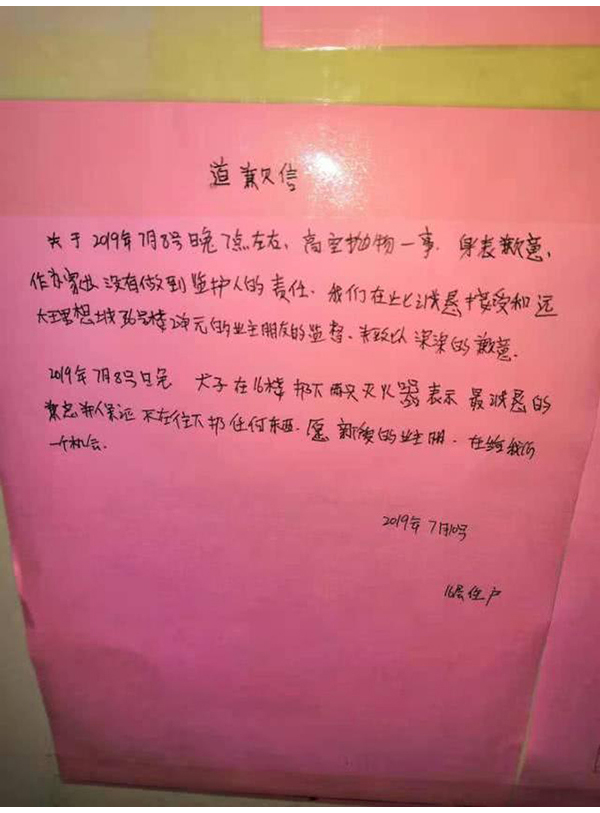 道歉信
关于2019年7月8号日晚7点左右、高空抛物一事.身表歉意,
作为家长没有做到监护人的责任.我们在此诚恳接受和远
大理想城36号楼2单元的业主朋友的监督、并致以深深的歉意.
2019年7月8号日晚 犬子在16楼扔下两只灭火器表示最诚恳的
兼总并保证不在往下扔任何东西.愿新俊的业主朋.在给我们
一个机会.
2019年7月10号
16层住户